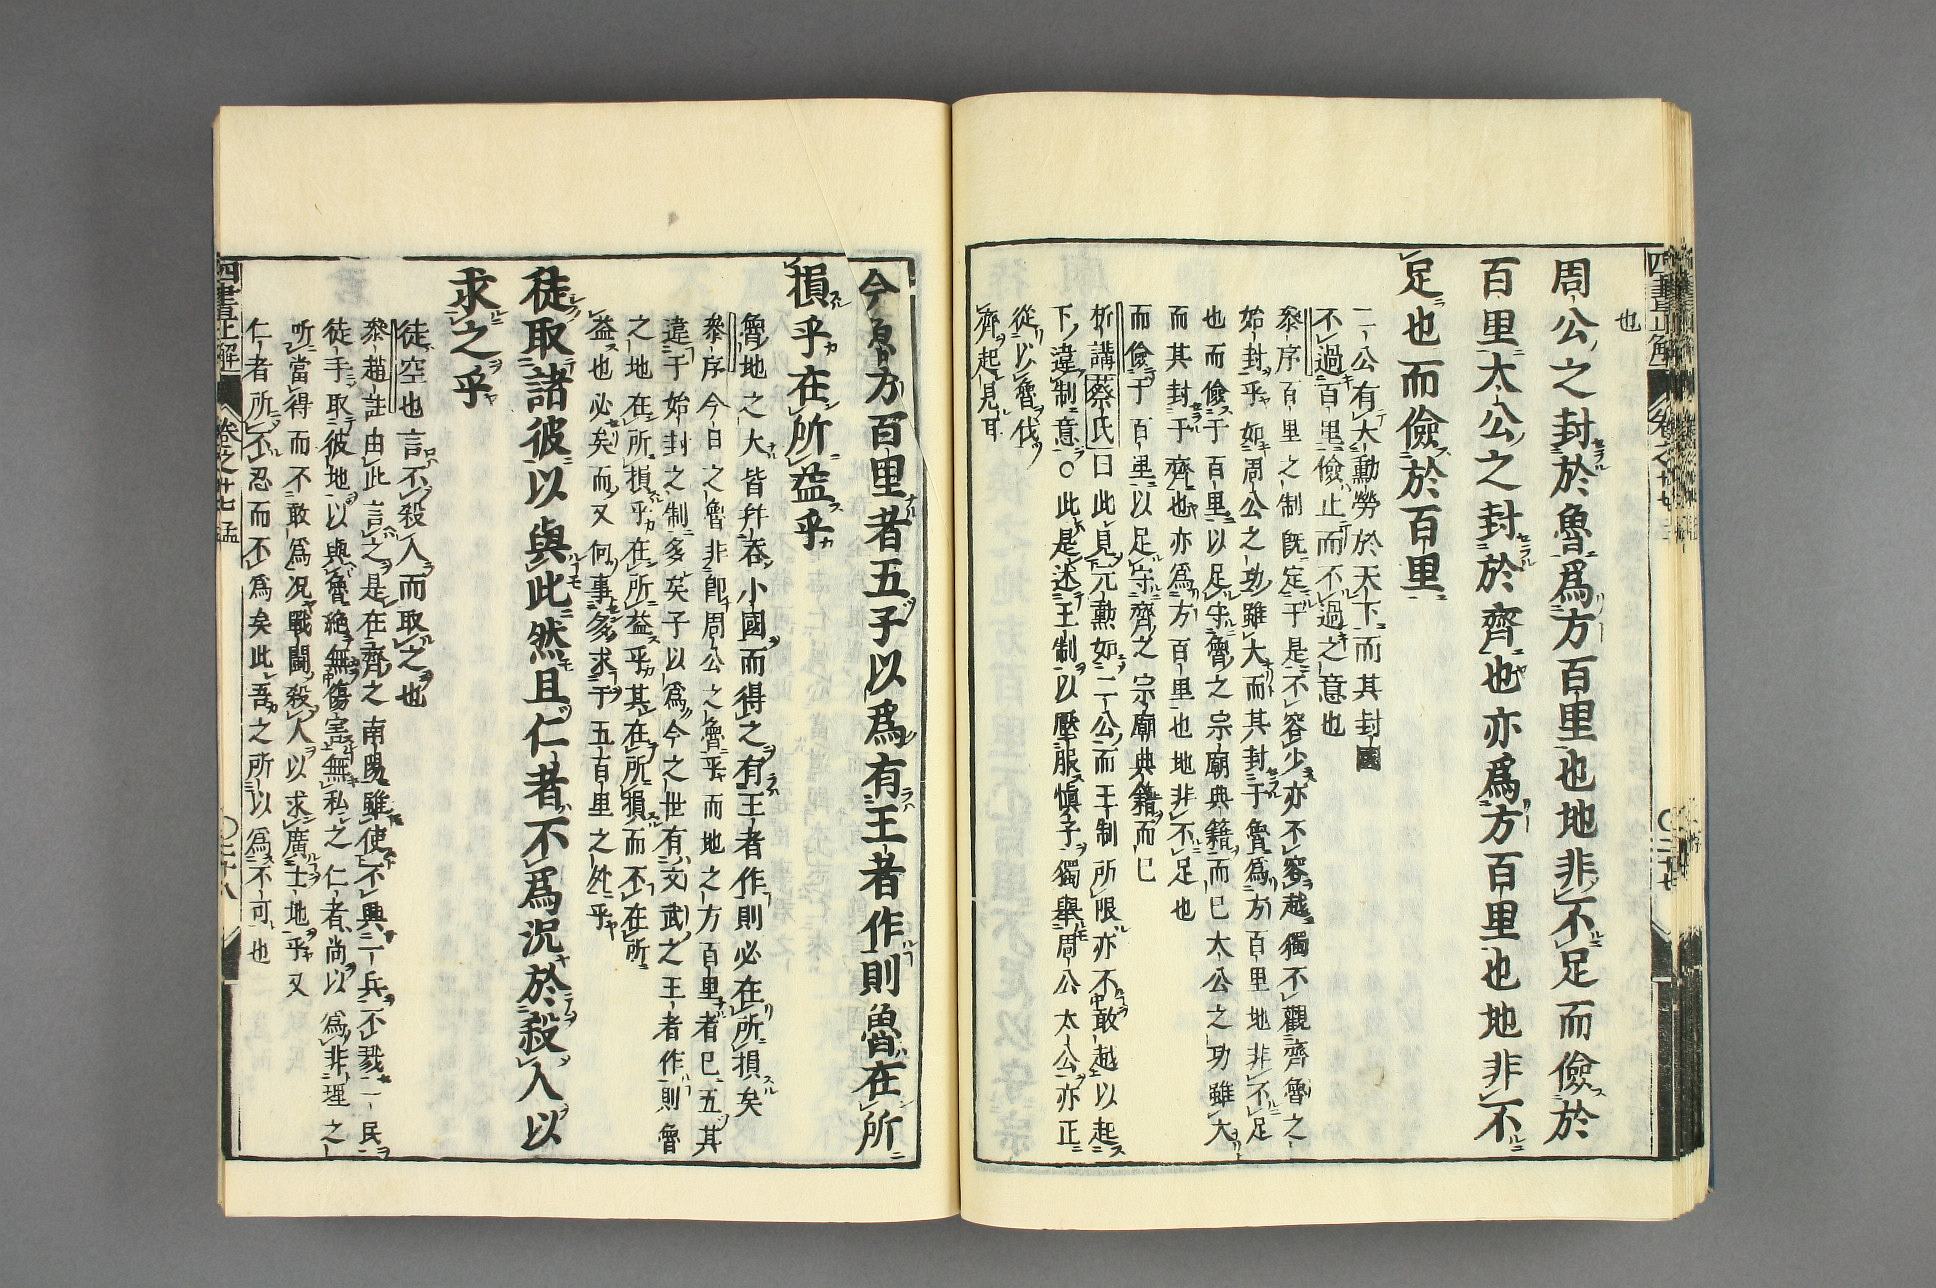 也
周公之封於魯爲方百里也地非不足而儉於
百里太公之封於齊也亦爲方百里也地非不
足也而儉於百里
二公有大勳勞於天下而其封國
不過百里儉止而不過之意也
黍序百里之制既定于是不容少亦不容越獨不觀齊魯之
始封乎如周公之功雖大而其封于魯爲方百里地非不足
也而儉于百里以足守魯之宗廟典籍而已太公之功雖大
而其封于齊也亦爲方百里也地非不足也
而儉于百里以足守齊之宗廟典籍而已
析講蔡氏曰此見元勳如二公而王制所限亦不敢越以起
下違制意○此是述王制以壓服慎子獨舉周公太公亦正
從以魯伐
齊起見耳
今魯方百里者五子以爲有王者作則魯在所
損乎在所益乎
魯地之大皆幷吞小國而得之有王者作則必在所損矣
黍序今日之魯非卽周公之魯乎而地之方百里者已五其
違于始封之制多矣子以爲今之世有文武之王者作則魯
之地在所損乎在所益乎其在所損而不在所
益也必矣而又何事多求于五百里之外乎
徒取諸彼以與此然且仁者不爲況於殺人以
求之乎
徒空也言不殺人而取之也
黍趙註由此言之是在齊之南陽雖使不興一兵不戮一民
徒手取彼地以與魯絕無傷害無私之仁者尚以爲非理之
所當得而不敢爲况戰鬪殺人以求廣土地乎又
仁者所不忍而不爲矣此吾之所以爲不可也
四書正解
卷之廿七 孟
〇二十八